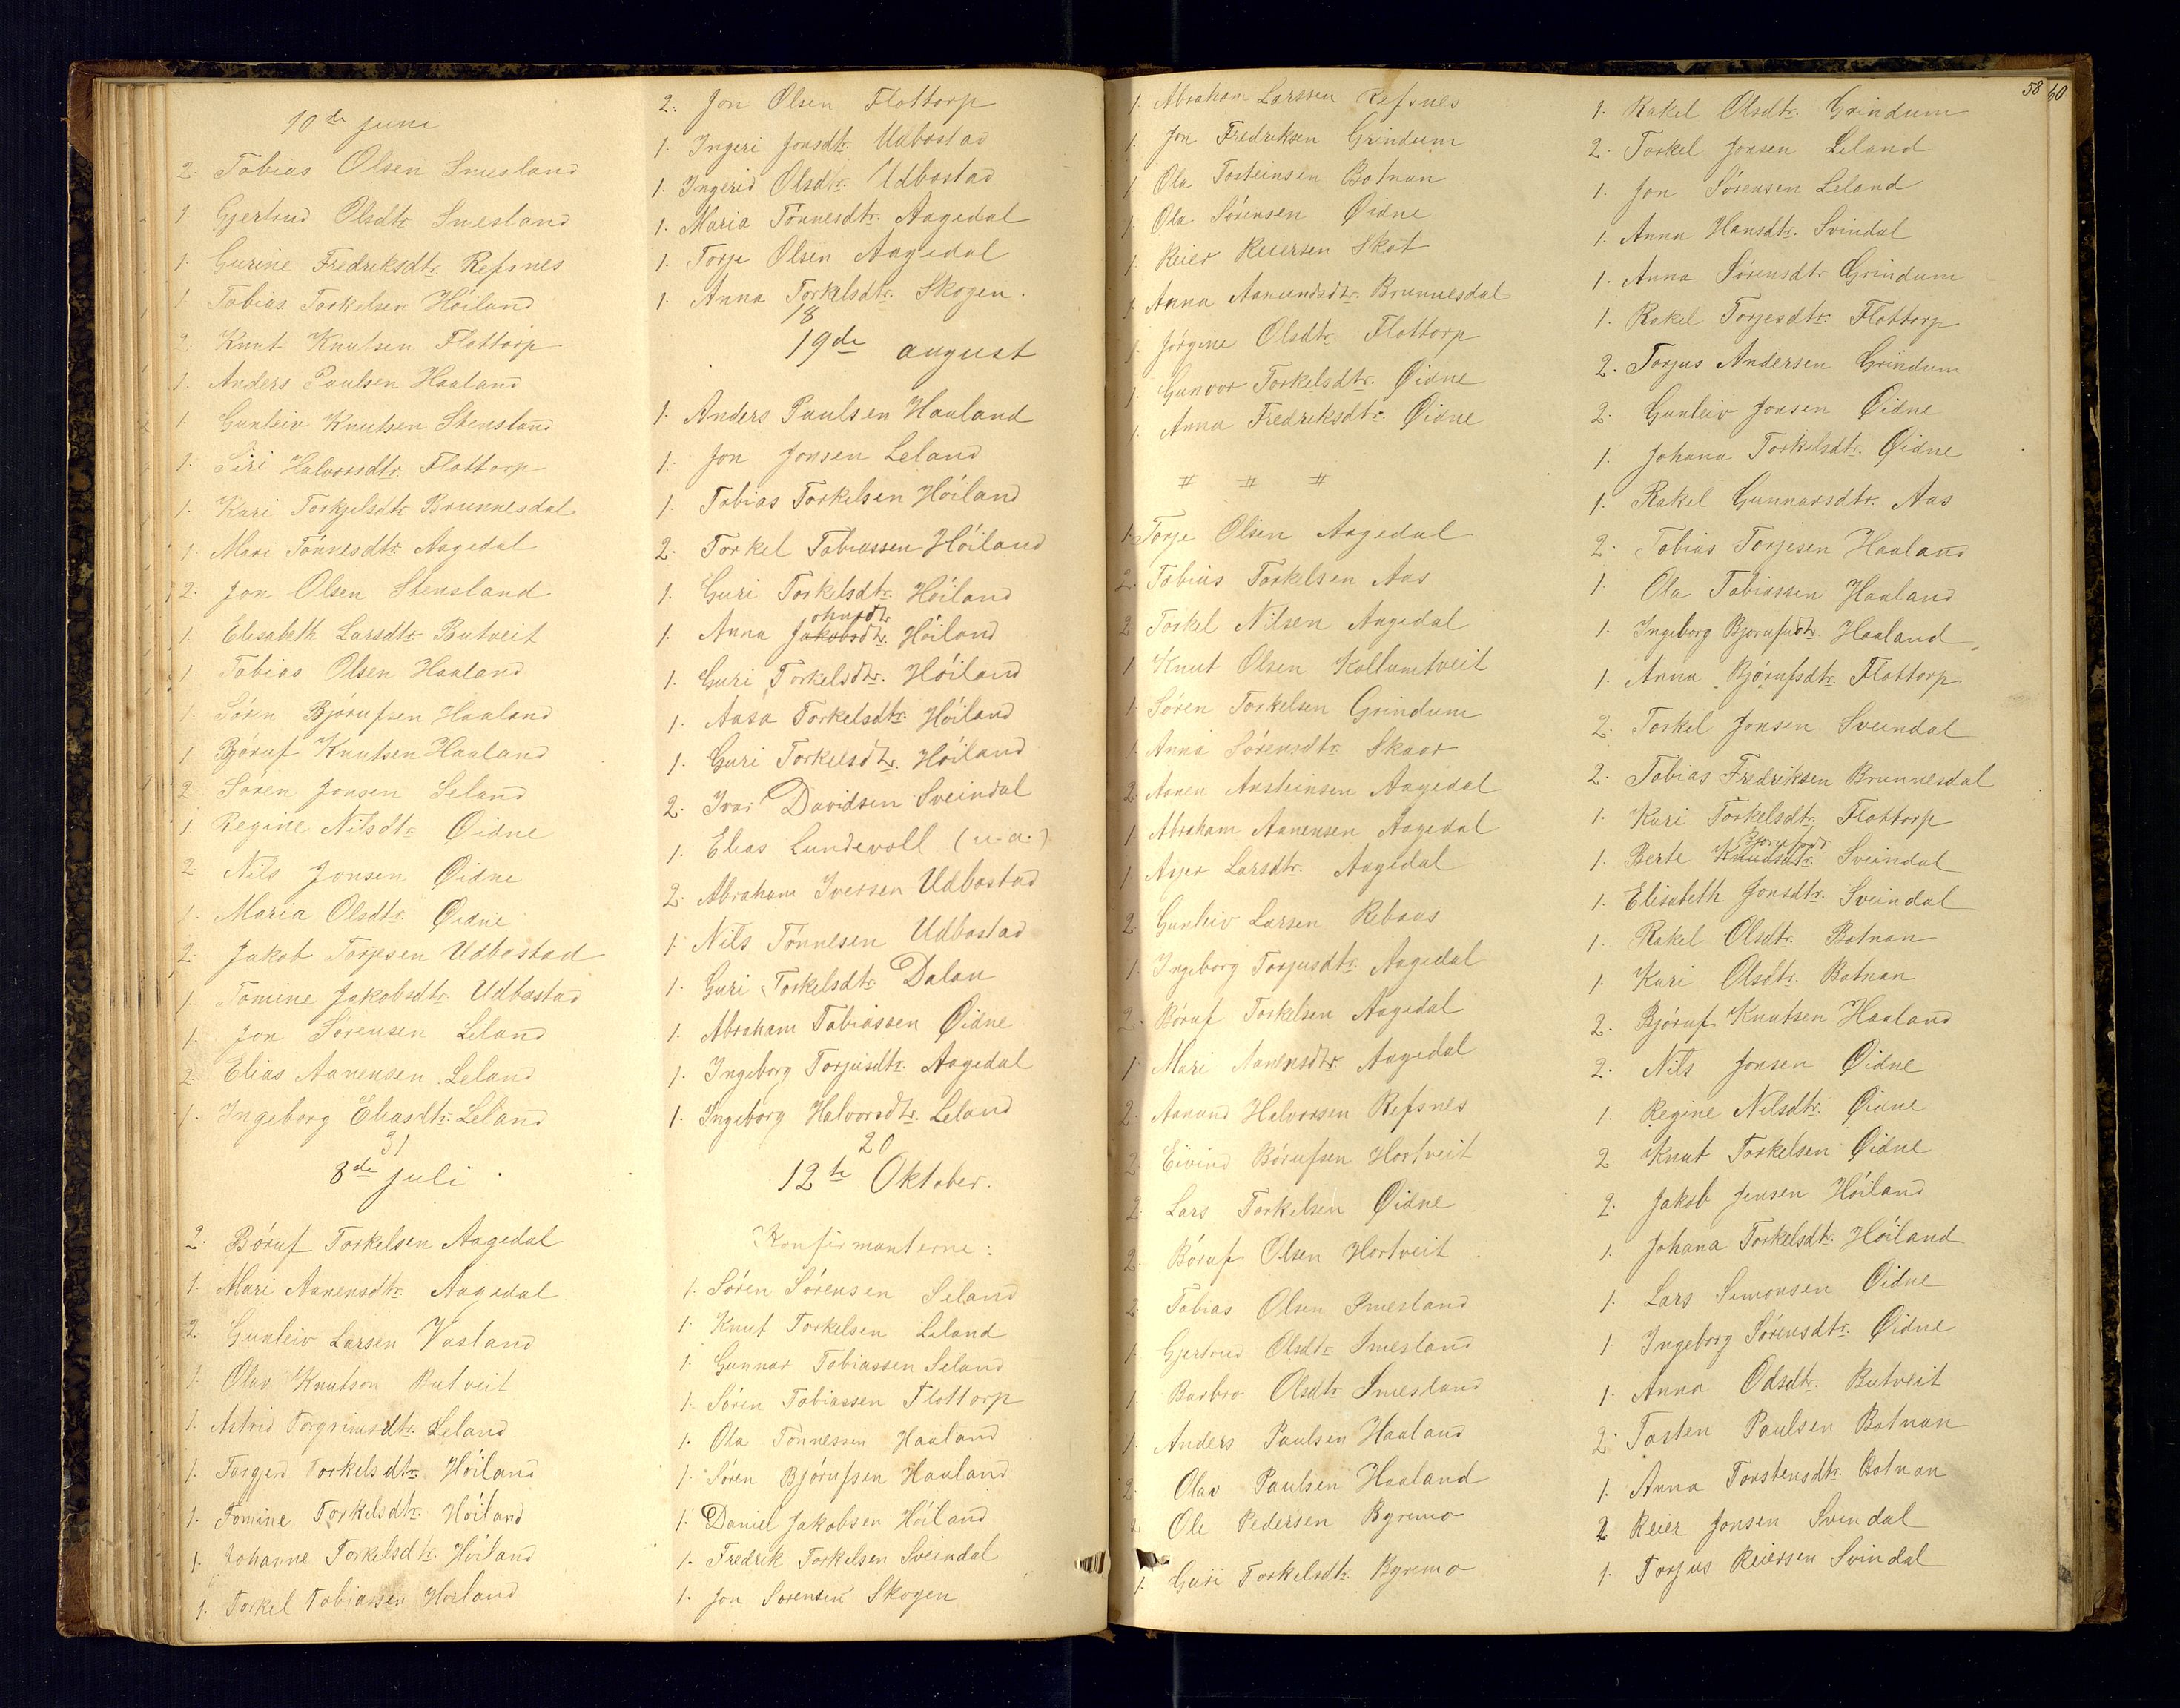 10de juni
2. Tobias Olsen Smesland
1. Gjertrud Olsdtr. Smesland
1. Gurine Fredriksdtr. Refsnes
1. Tobias Torkelsen Höiland
2. Knut Knutsen Flottorp
1. Anders Paulsen Haaland
1. Gunleiv Knutsen Stensland
1. Siri Halvorsdtr. Flottorp
1. Kari Torkjelsdtr. Brunnesdal
1. Mari Tönnesdtr. Aagedal
2. Jon Olsen Stensland
1. Elisabeth Larsdtr. Butveit
1. Tobias Olsen Haaland
1. Sören Björufsen Haaland
1. Björuf Knutsen Haaland
2. Sören Jonsen Leland
1. Regine Nilsdtr. Øidne
2. Nils Jonsen Øidne
1. Maria Olsdtr. Øidne
2. Jakob Torjesen Udbostad
1. Tomine Jakobsdtr. Udbostad
1. Jon Sörensen Leland
2. Elias Aanensen Leland
1. Ingeborg Eliasdtr. Leland
31
8de juli
2. Böruf Torkelsen Aagedal
1. Mari Aanensdtr. Aagedal
2. Gunleiv Larsen Vasland
1. Olav Knutson Butveit
1. Astrid Torgrimsdtr. Leland
1. Torgerd Torkelsdtr. Höiland
1. Tomine Torkelsdtr. Höiland
1. Johanne Torkelsdtr. Höiland
1. Torkel Tobiassen Höiland
2. Jon Olsen Flottorp
1. Ingeri Jonsdtr. Udbostad
1. Ingerid Olsdtr. Udbostad
1. Maria Tönnesdtr. Aagedal
1. Torje Olsen Aagedal
1. Anna Torkelsdtr. Skogen.
18
19de august
1. Anders Paulsen Haaland
1. Jon Jonsen Leland
1. Tobias Torkelsen Höiland
2. Torkel Tobiassen Höiland
1. Guri Torkelsdtr. Höiland
ohnsdtr
1. Anna Jakobsdtr. Höiland
1. Guri Torkelsdtr. Höiland
1. Aasa Torkelsdtr. Höiland
1. Guri Torkelsdtr. Höiland
2. Ivar Davidsen Sveindal
1. Elias Lundevoll (u. a.)
2. Abraham Iversen Udbostad
1. Nils Tönnesen Udbostad
1. Guri Torkelsdtr. Dalan
1. Abraham Tobiassen Øidne
1. Ingeborg Torjusdtr. Aagedal
1. Ingeborg Halvorsdtr. Leland
20
12te Oktober.
Konfirmanterne:
1. Sören Sörensen Leland
1. Knut Torkelsen Leland
1. Gunnar Tobiassen Leland
1. Sören Tobiassen Flottorp
1. Ola Tönnessen Haaland
1. Sören Björufsen Haaland
1. Daniel Jakobsen Höiland
1. Fredrik Torkelsen Sveindal
1. Jon Sorensen Skogen
1. Abraham Larssen Refsnes
1. Jon Fredriksen Grindum
1. Ola Tosteinsen Botnan
1. Ola Sörensen Øidne
1. Reier Reiersen Skat
1. Anna Aanundsdtr. Brunnesdal
1. Jörgine Olsdtr. Flottorp
1. Gunvor Torkelsdtr. Øidne
1. Anna Fredriksdtr. Øidne
# # #
1. Torje Olsen Aagedal
2. Tobias Torkelsen Aas
2. Torkel Nilsen Aagedal
1. Knut Olsen Kollumtveit
1. Sören Torkelsen Grindum
1. Anna Sörensdtr. Skaar
2. Aanen Ansteinsen Aagedal
1. Abraham Aanensen Aagedal
1. Asjer Larsdtr. Aagedal
2. Gunleiv Larsen Rebaas
1. Ingeborg Torjusdtr. Aagedal
2. Böruf Torkelsen Aagedal
1. Mari Aanensdtr. Aagedal
2. Aanund Halvorsen Refsnes
2. Eivind Börufsen Hortveit
2. Lars Torkelsen Øidne
2. Böruf Olsen Hortveit
2. Tobias Olsen Smesland
1. Gjertrud Olsdtr. Smesland
1. Barbro Olsdtr. Smesland
1. Anders Paulsen Haaland
2. Olav Paulsen Haaland
2. Ole Pedersen Byremo
1. Guri Torkelsdtr. Byremo
58 60
1. Rakel Olsdtr. Grindum
2. Torkel Jonsen Leland
1. Jon Sörensen Leland
1. Anna Hansdtr. Svindal
1. Anna Sörensdtr. Grindum
1. Rakel Torjesdtr. Flottorp
2. Torjus Andersen Grindum
2. Gunleiv Jonsen Øidne
1. Johana Torkelsdtr. Øidne
1. Rakel Gunnarsdtr. Aas
2. Tobias Torjesen Haaland
1. Ola Tobiassen Haaland
1. Ingeborg Bjorufsdtr. Haaland
1. Anna Björufsdtr. Flottorp
2. Torkel Jonsen Sveindal
2. Tobias Fredriksen Brunnesdal
1. Kari Torkelsdtr. Flottorp
Bjorufsdtr
1. Berte Knudsdtr. Sveindal
1. Elisabeth Jonsdtr. Sveindal
1. Rakel Olsdtr. Botnan
1. Kari Olsdtr. Botnan
2. Björuf Knutsen Haaland
2. Nils Jonsen Øidne
1. Regine Nilsdtr. Øidne
2. Knut Torkelsen Øidne
2. Jakob Jensen Höiland
1. Johana Torkelsdtr. Höiland
1. Lars Simonsen Øidne
1. Ingeborg Sörensdtr. Øidne
1. Anna Odsdtr. Butveit
2. Tosten Paulsen Botnan
1. Anna Torstensdtr. Botnan
2 Reier Jonsen Svindal
1. Torjus Reiersen Svindal